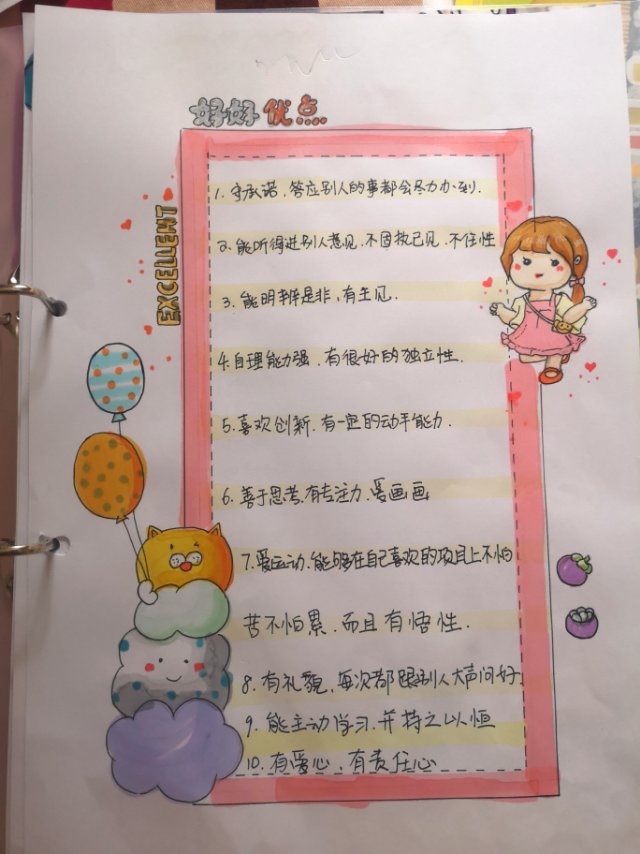 好好优点....
EXCELLENT
1. 守承诺.答应别人的事都会尽力办到.
2. 能听得进别人意见.不固执己见.不任性
3. 能明辨是非、有主见.
4.自理能力强.有很好的独立性.
5.喜欢创新.有一定的动手能力.
6.善于思考.有专注力.爱画画
7.爱运动.能够在自己喜欢的项目上不怕
苦不怕累.而且有悟性.
8.有礼貌、每次都跟别人大声问好
9.能主动学习.并持之以恒
10.有爱心、有责任心